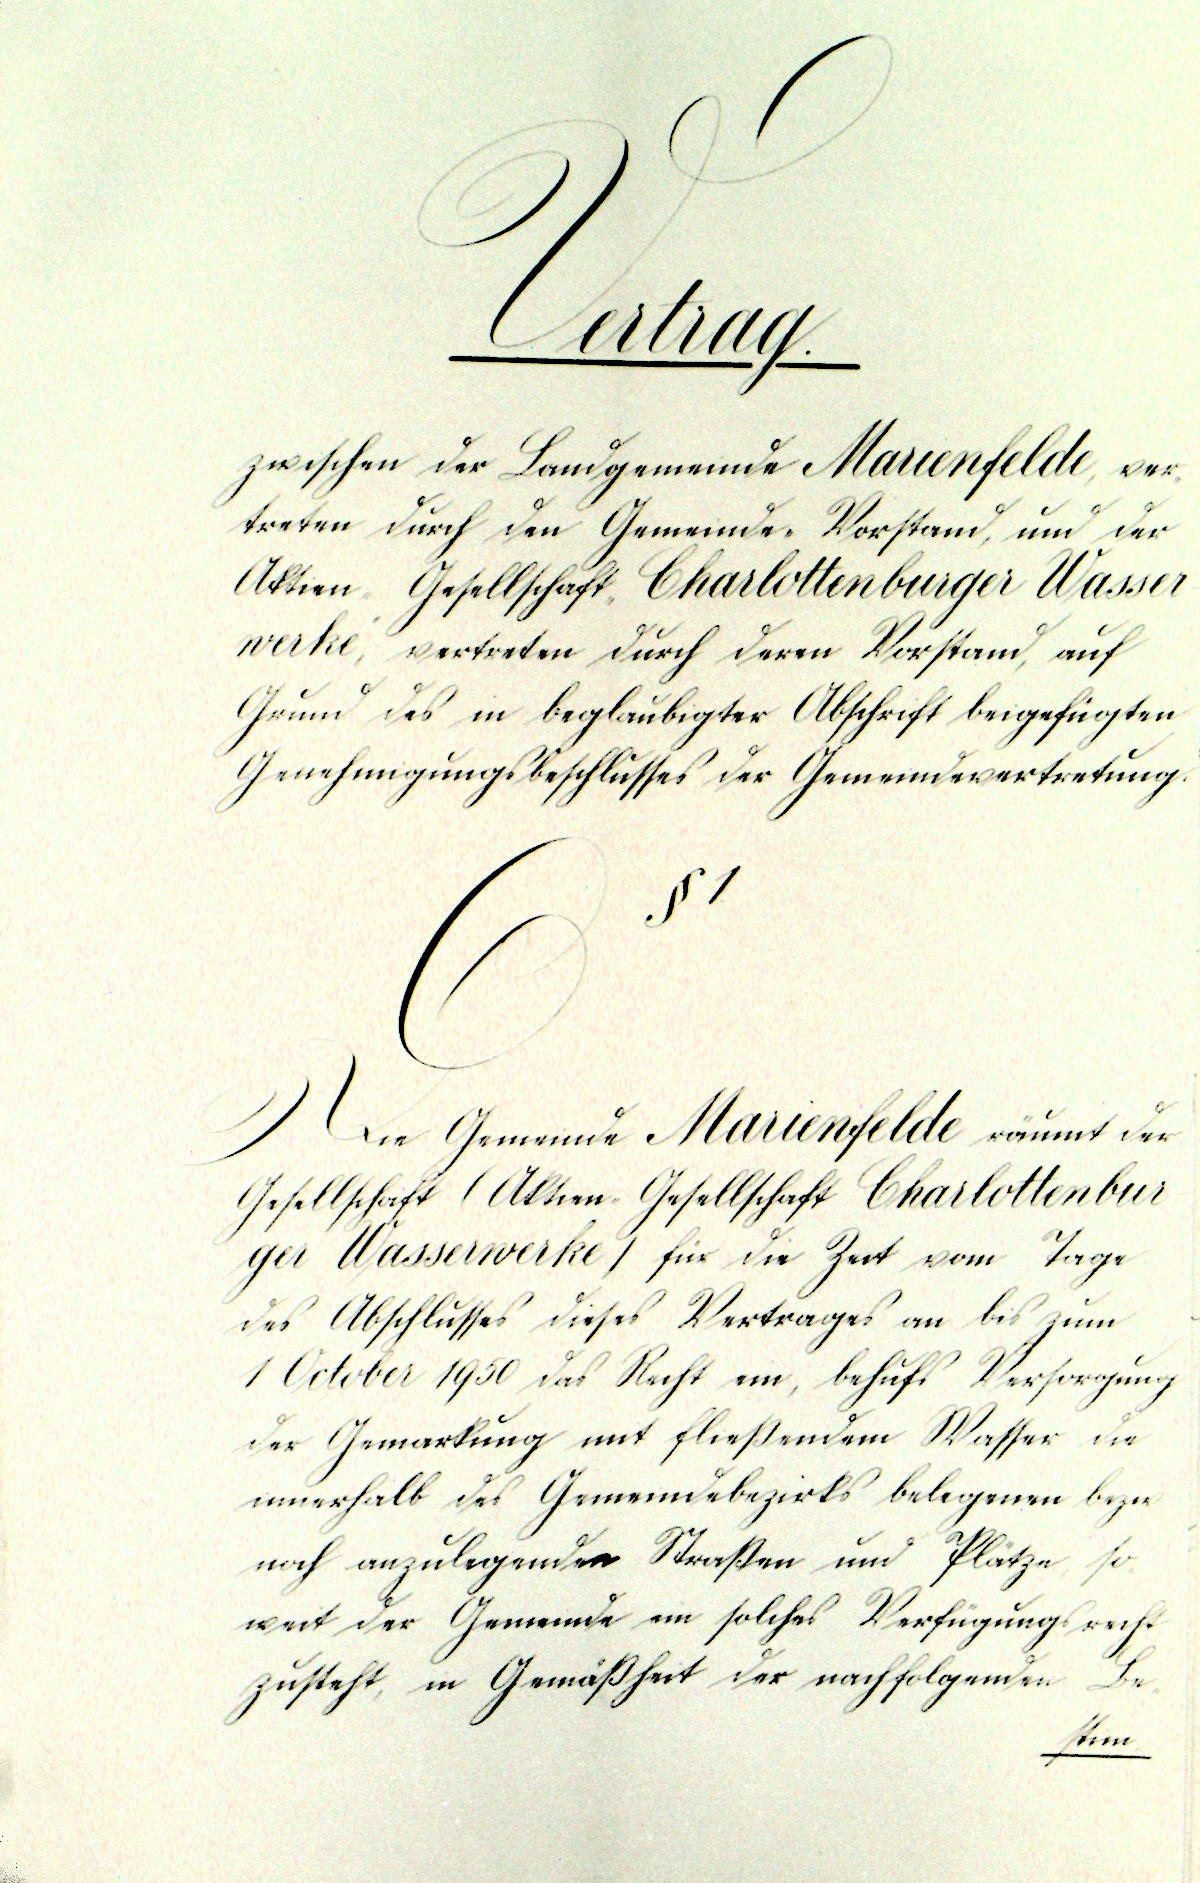 Vertrag.
zwischen der Landgemeinde Marienfelde, ver-
treten durch den Gemeinde-Vorstand, und der
Aktien-Gesellschaft „Charlottenburger Wasser
werke", vertreten durch deren Vorstand, auf
Grund des in beglaubigter Abschrift beigefügten
Genehmigungsbeschlusses der Gemeindevertretung.
§ 1
Die Gemeinde Marienfelde räumt der
Gesellschaft (Aktien-Gesellschaft Charlottenbur
ger Wasserwerke) für die Zeit vom Tage
des Abschlusses dieses Vertrages an bis zum
1 October 1950 das Recht ein, behufs Versorgung
der Gemarkung mit fließendem Wasser die
innerhalb des Gemeindebezirks belegenen bezw
noch anzulegenden Straßen und Plätze, so-
weit der Gemeinde ein solches Verfügungsrecht
zusteht, in Gemäßheit der nachfolgenden Be-
stim